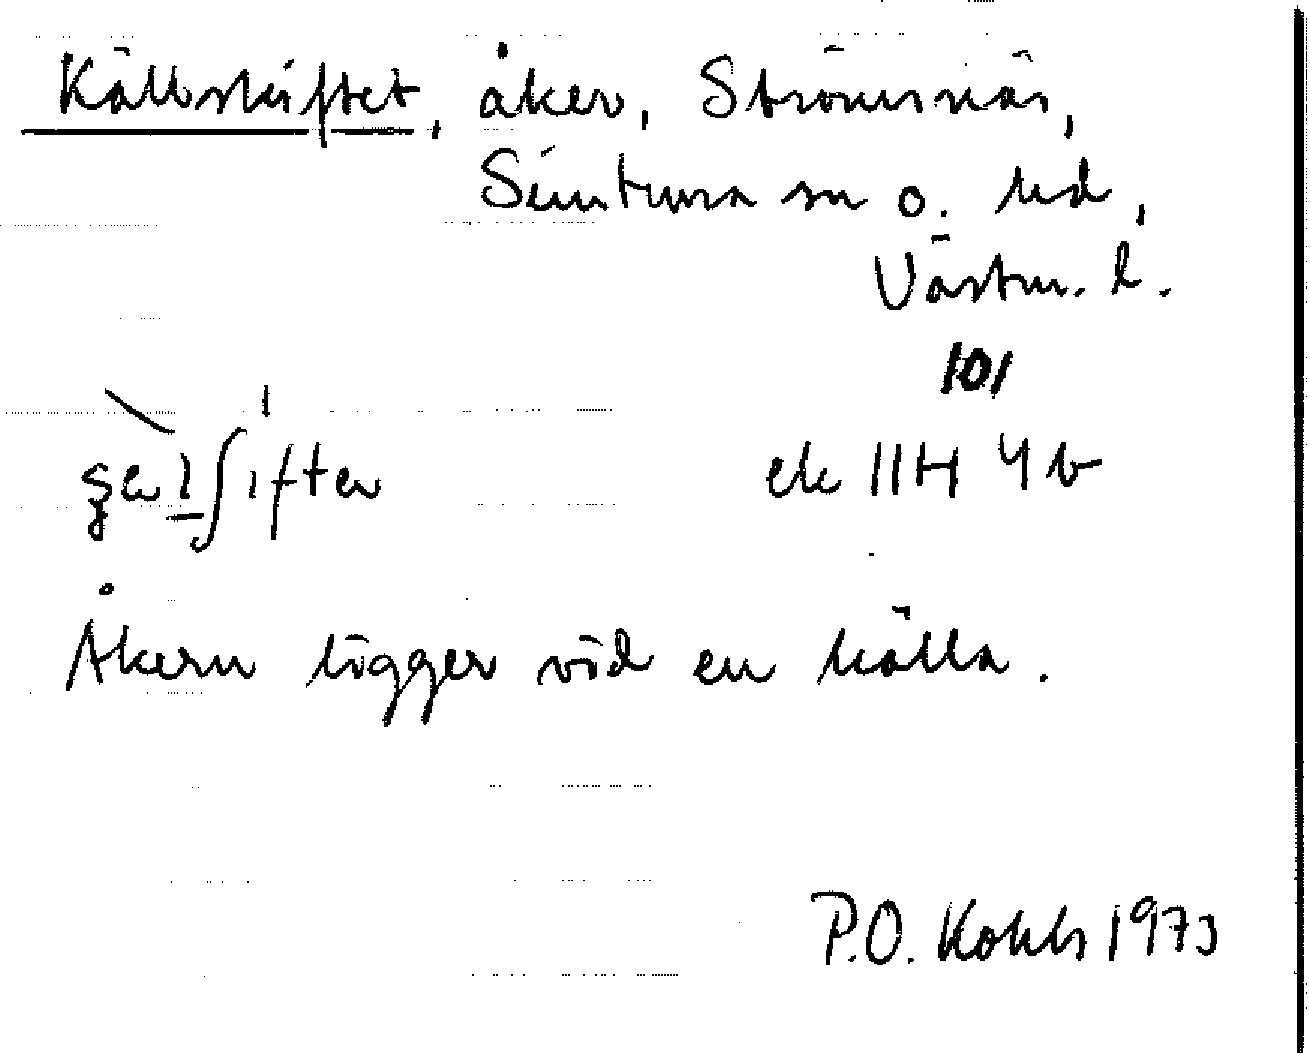 Källskiftet, åker, Strömsnäs,
Simtuna sn o. hd,
Västm. l.
101
ek 11H 4b
Åkern ligger vid en källa.
P.O. Kohls 1973